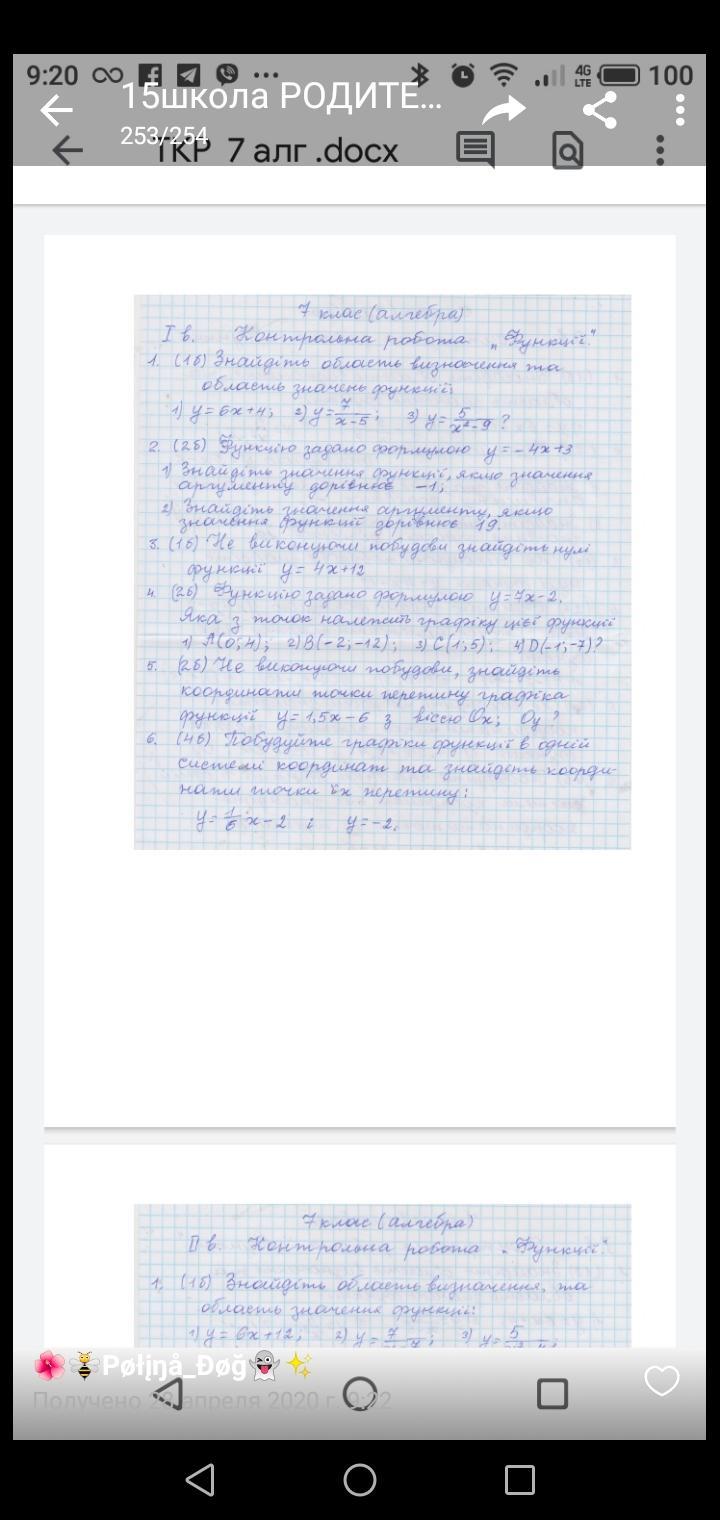 9:20 ... 4G LTE 100
15школа РОДИТЕ...
253/254
ТКР 7 алг .docx
7 клас (алгебра)
I в. Контрольна робота „Функції."
1. (1б) Знайдіть область визначення та
область значень функції:
1) y=6x+4; 2) y=7/(x-5); 3) y=5/(x²-9)?
2. (2б) Функцію задано формулою y=-4x+3
1) Знайдіть значення функції, якщо значення
аргументу дорівнює -1;
2) Знайдіть значення аргументу, якщо
значення функції дорівнює 19.
3. (1б) Не виконуючи побудови знайдіть нулі
функції y=4x+12
4. (2б) Функцію задано формулою y=7x-2.
Яка з точок належить графіку цієї функції
1) A(0;4); 2) B(-2;-12); 3) C(1;5); 4) D(-1;-7)?
5. (2б) Не виконуючи побудови, знайдіть
координати точки перетину графіка
функції y=1,5x-6 з віссю Ox; Oy?
6. (4б) Побудуйте графіки функції в одній
системі координат та знайдіть коорди-
нати точки їх перетину:
y=1/6 x-2 і y=-2.
7 клас (алгебра)
II в. Контрольна робота „Функції".
1. (1б) Знайдіть область визначення, та
область значення функції:
1) y=6x+12; 2) y=7 3) y=5
Pøłįŋå_Đøğ
Получено 28 апреля 2020 г. 9:22